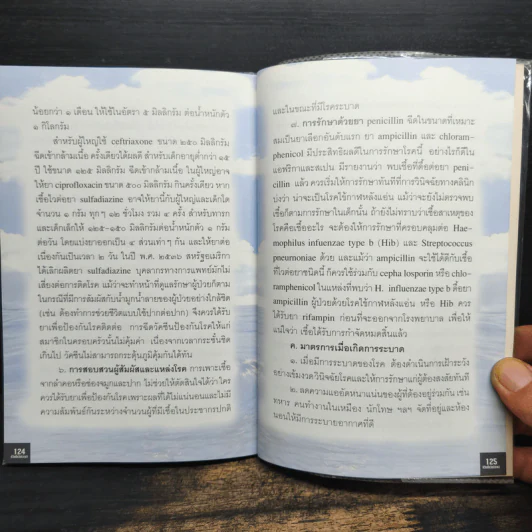 น้อยกว่า ๑ เดือน ให้ใช้ในอัตรา ๕ มิลลิกรัม ต่อน้ำหนักตัว
๑ กิโลกรัม
สำหรับผู้ใหญ่ใช้ ceftriaxone ขนาด ๒๕๐ มิลลิกรัม
ฉีดเข้ากล้ามเนื้อ ครั้งเดียวได้ผลดี สำหรับเด็กอายุต่ำกว่า ๑๕
ปี ใช้ขนาด ๑๒๕ มิลลิกรัม ฉีดเข้ากล้ามเนื้อ ในผู้ใหญ่อาจ
ให้ยา ciprofloxacin ขนาด ๕๐๐ มิลลิกรัม กินครั้งเดียว หาก
เชื้อไวต่อยา sulfadiazine อาจให้ยานี้กับผู้ใหญ่และเด็กโต
จำนวน ๑ กรัม ทุกๆ ๑๒ ชั่วโมง รวม ๔ ครั้ง สำหรับทารก
และเด็กเล็กให้ ๑๒๕–๑๕๐ มิลลิกรัมต่อน้ำหนักตัว ๑ กรัม
ต่อวัน โดยแบ่งยาออกเป็น ๔ ส่วนเท่าๆ กัน และให้ยาต่อ
เนื่องกันเป็นเวลา ๒ วัน ในปี พ.ศ. ๒๕๓๖ สหรัฐอเมริกา
ได้เลิกผลิตยา sulfadiazine บุคลากรทางการแพทย์มักไม่
เสี่ยงต่อการติดโรค แม้ว่าจะทำหน้าที่ดูแลรักษาผู้ป่วยก็ตาม
ในกรณีที่มีการสัมผัสกับน้ำมูกน้ำลายของผู้ป่วยอย่างใกล้ชิด
(เช่น ต้องทำการช่วยชีวิตแบบใช้ปากต่อปาก) จึงควรได้รับ
ยาเพื่อป้องกันโรคติดต่อ การฉีดวัคซีนป้องกันโรคให้แก่
สมาชิกในครอบครัวนั้นไม่คุ้มค่า เนื่องจากเวลากระชั้นชิด
เกินไป วัคซีนไม่สามารถกระตุ้นภูมิคุ้มกันได้ทัน
๖. การสอบสวนผู้สัมผัสและแหล่งโรค การเพาะเชื้อ
จากลำคอหรือช่องจมูกและปาก ไม่ช่วยให้ตัดสินใจได้ว่า ใคร
ควรได้รับยาเพื่อป้องกันโรคเพราะผลที่ได้ไม่แน่นอนและไม่มี
ความสัมพันธ์กันระหว่างจำนวนผู้ที่มีเชื้อในประชากรปกติ
124
และในขณะที่มีโรคระบาด
๗. การรักษาด้วยยา penicillin ฉีดในขนาดที่เหมาะ
สมเป็นยาเลือกอันดับแรก ยา ampicillin และ chloram-
phenicol มีประสิทธิผลดีในการรักษาโรคนี้ อย่างไรก็ดีใน
แอฟริกาและสเปน มีรายงานว่า พบเชื้อที่ดื้อต่อยา peni-
cillin แล้ว ควรเริ่มให้การรักษาทันทีที่การวินิจฉัยทางคลินิก
บ่งว่า น่าจะเป็นโรคไข้กาฬหลังแอ่น แม้ว่าจะยังไม่ตรวจพบ
เชื้อก็ตามการรักษาในเด็กนั้น ถ้ายังไม่ทราบว่าเชื้อสาเหตุของ
โรคคือเชื้ออะไร จะต้องให้การรักษาที่ครอบคลุมต่อ Hae-
mophilus infuenzae type b (Hib) และ Streptococcus
pneumoniae ด้วย แม้ว่า ampicillin จะใช้ได้ดีกับเชื้อ
ที่ไวต่อยาชนิดนี้ ก็ควรใช้ร่วมกับ cepha losporin หรือ chlo-
ramphenicol ในแหล่งที่พบว่า H. influenzae type b ดื้อยา
ampicillin ผู้ป่วยด้วยโรคไข้กาฬหลังแอ่น หรือ Hib ควร
ได้รับยา rifampin ก่อนที่จะออกจากโรงพยาบาล เพื่อให้
แน่ใจว่า เชื้อได้รับการกำจัดหมดสิ้นแล้ว
ค. มาตรการเมื่อเกิดการระบาด
๑. เมื่อมีการระบาดของโรค ต้องดำเนินการเฝ้าระวัง
อย่างเข้มงวดวินิจฉัยโรคและให้การรักษาแก่ผู้ต้องสงสัยทันที
๒. ลดความแออัดหนาแน่นของผู้ที่ต้องอยู่ร่วมกัน เช่น
ทหาร คนทำงานในเหมือง นักโทษ ฯลฯ จัดที่อยู่และห้อง
นอนให้มีการระบายอากาศที่ดี
125